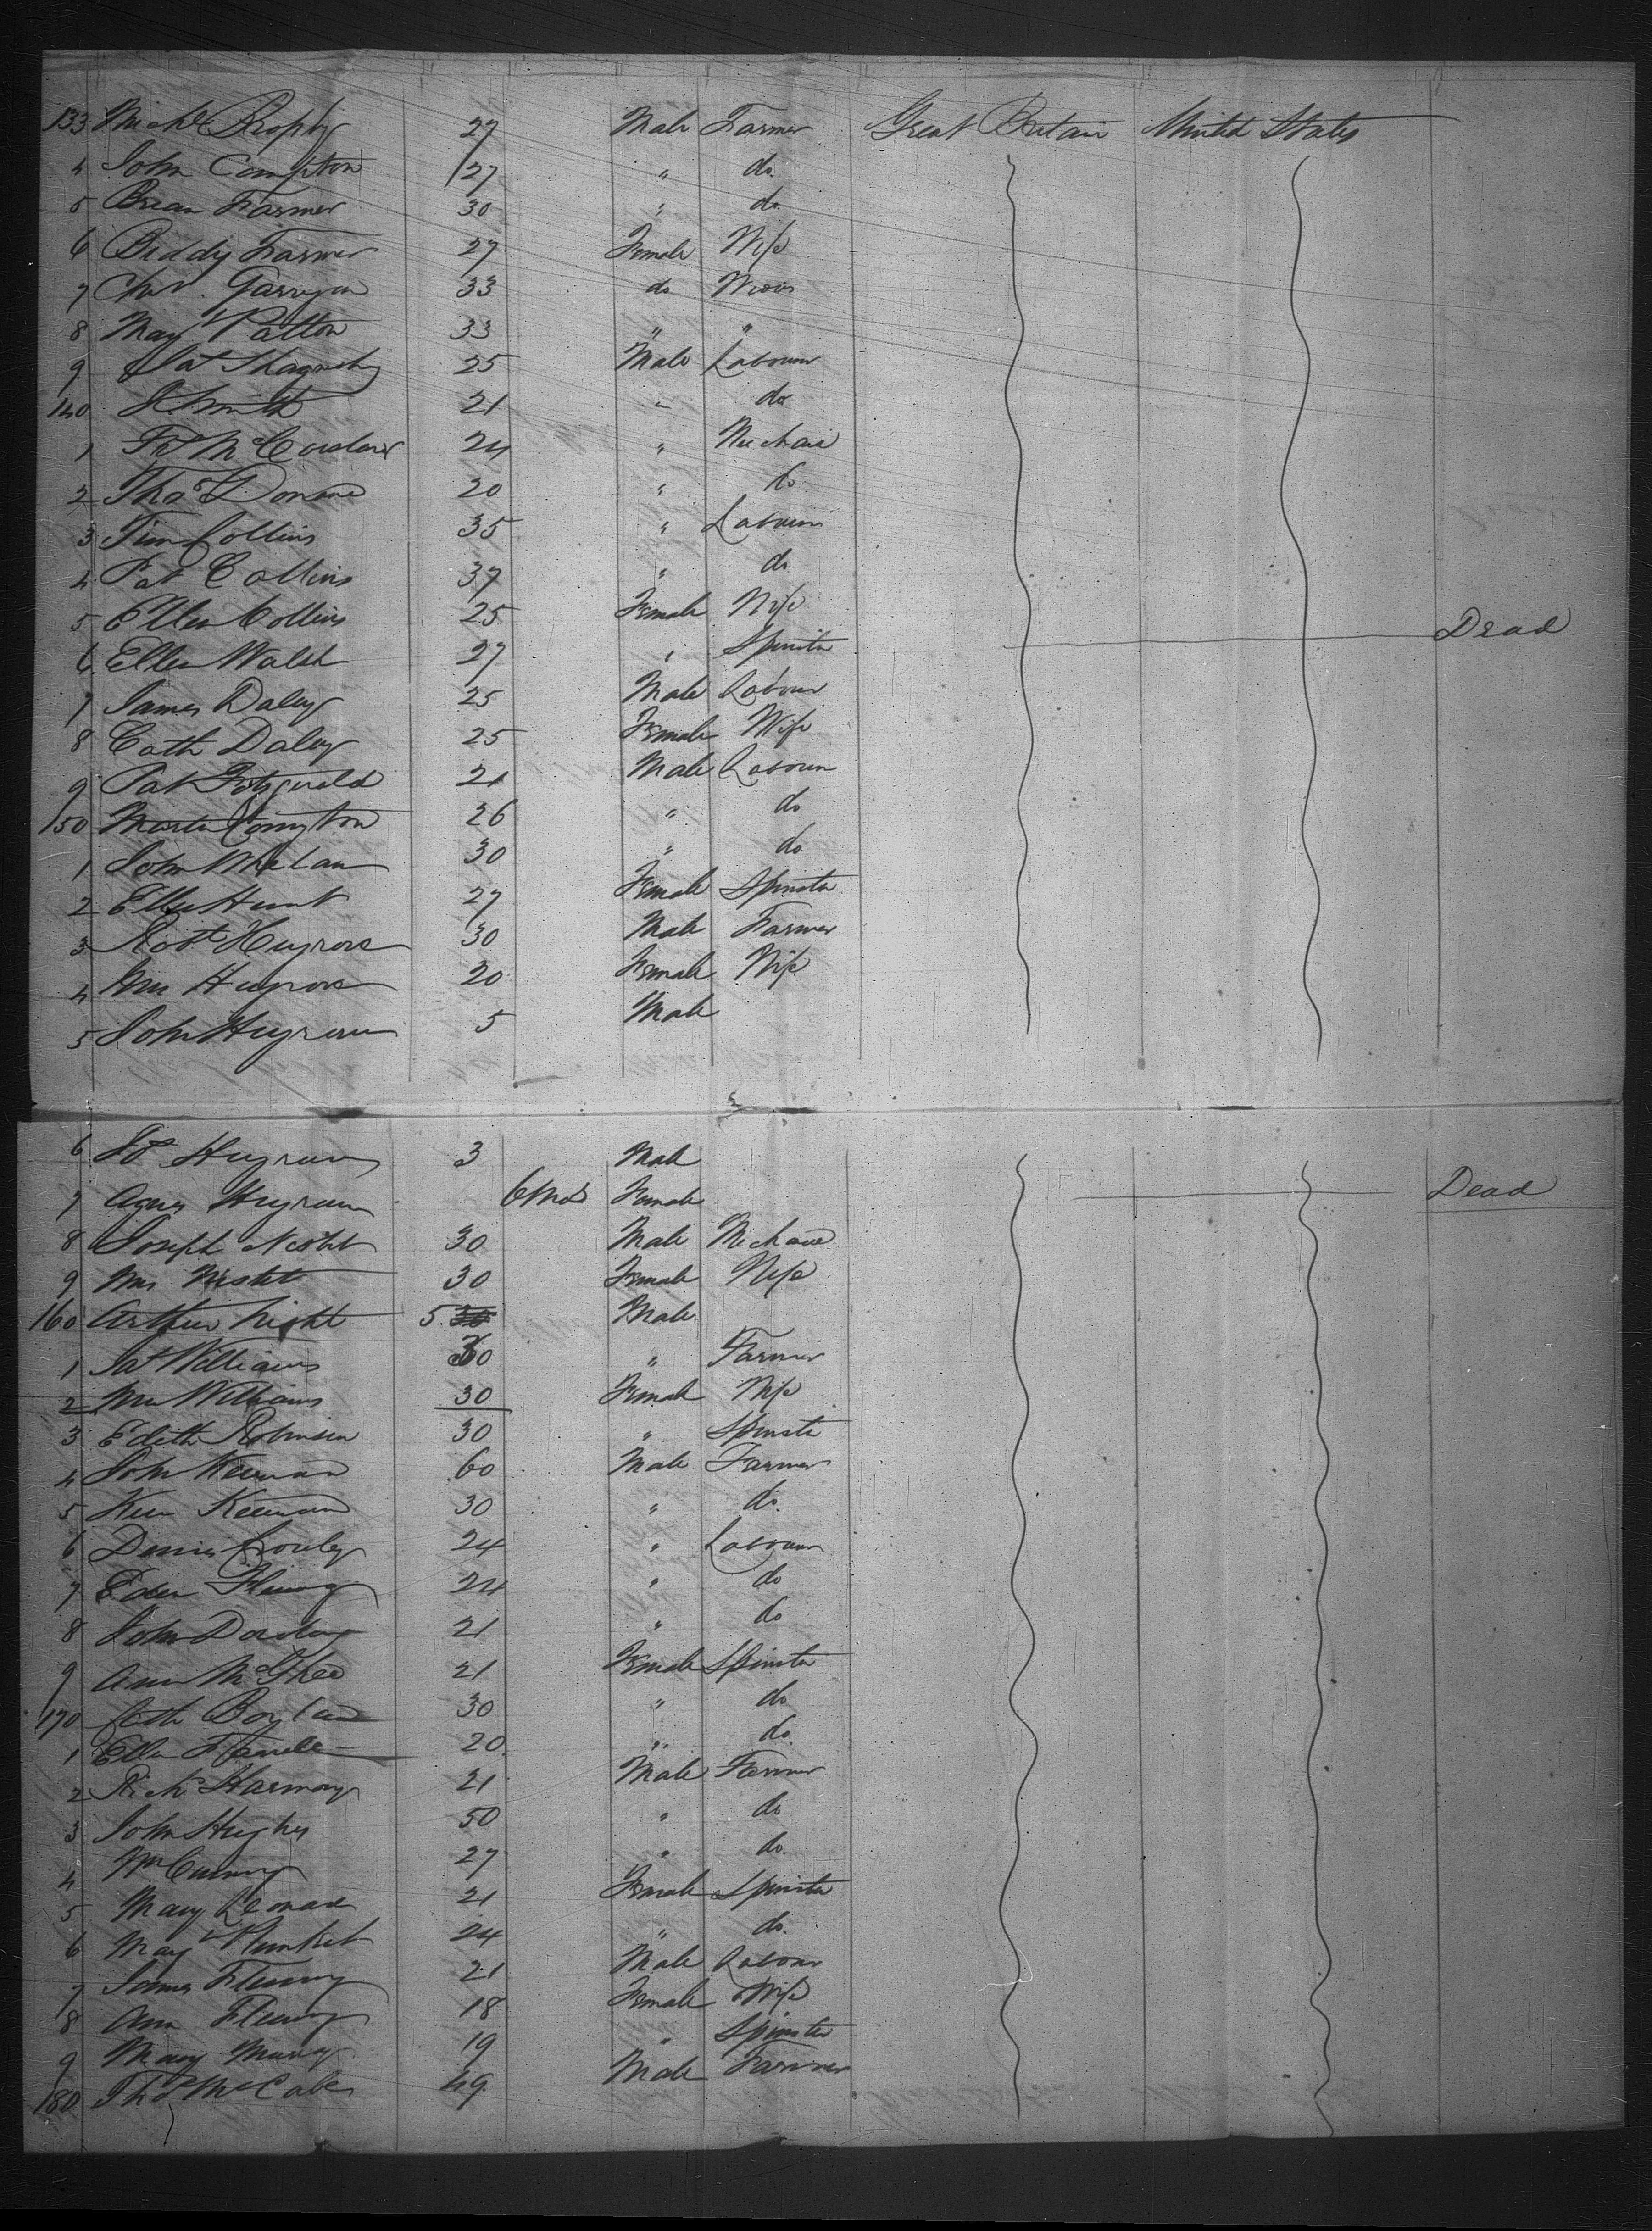 133 Mich'l Brophy 27 Male Farmer Great Britain United States
4 John Compton 27 " do
5 Brean Farmer 30 " do
6 Biddy Farmer 27 Female Wife
7 33 do
8 Mary Patton 33 " "
9 Pat 25 Male Labourer
140 Smith 21 " do
1 24 "
2 Thos 20 " do
3 Tim Collins 35 " Labourer
4 Pat Collins 37 " do
5 Ellen Collins 25 Female Wife
6 Ellen Walsh 27 " Spinster Dead
7 James Daley 25 Male Labour
8 Cath Daley 25 Female Wife
9 Pat Fitzgerald 21 Male Labourer
150 Martin Compton 26 " do
1 John Whelan 30 " do
2 Ellen Hunt 27 Female Spinster
3 Robt 30 Male Farmer
4 Mrs 20 Female Wife
5 John 5 Male
6 3 Male
7 Agnes 6 Mos Female Dead
8 Joseph Nesbit 30 Male Mechanic
9 Mrs Nesbit 30 Female Wife
160 Arthur 5 Male
1 Williams 30 " Farmer
2 Mrs Williams 30 Female Wife
3 Edith Robinson 30 " Spinster
4 John Keenan 60 Male Farmer
5 Keenan 30 " do
6 Denis Crowley 24 " Labourer
7 24 " do
8 John 21 " do
9 Ann McGhee 21 Female Spinster
170 Cath Boylan 30 " do
1 Ellen 20 " do
2 Rich'd 21 Male Farmer
3 John Hughes 50 " do
4 Wm 27 " do
5 Mary Leonard 21 Female Spinster
6 Mary Plunket 24 " do
7 James Fleming 21 Male Labour
8 Ann Fleming 18 Female Wife
9 Mary 19 " Spinster
180 Thos McCabe 49 Male Farmer